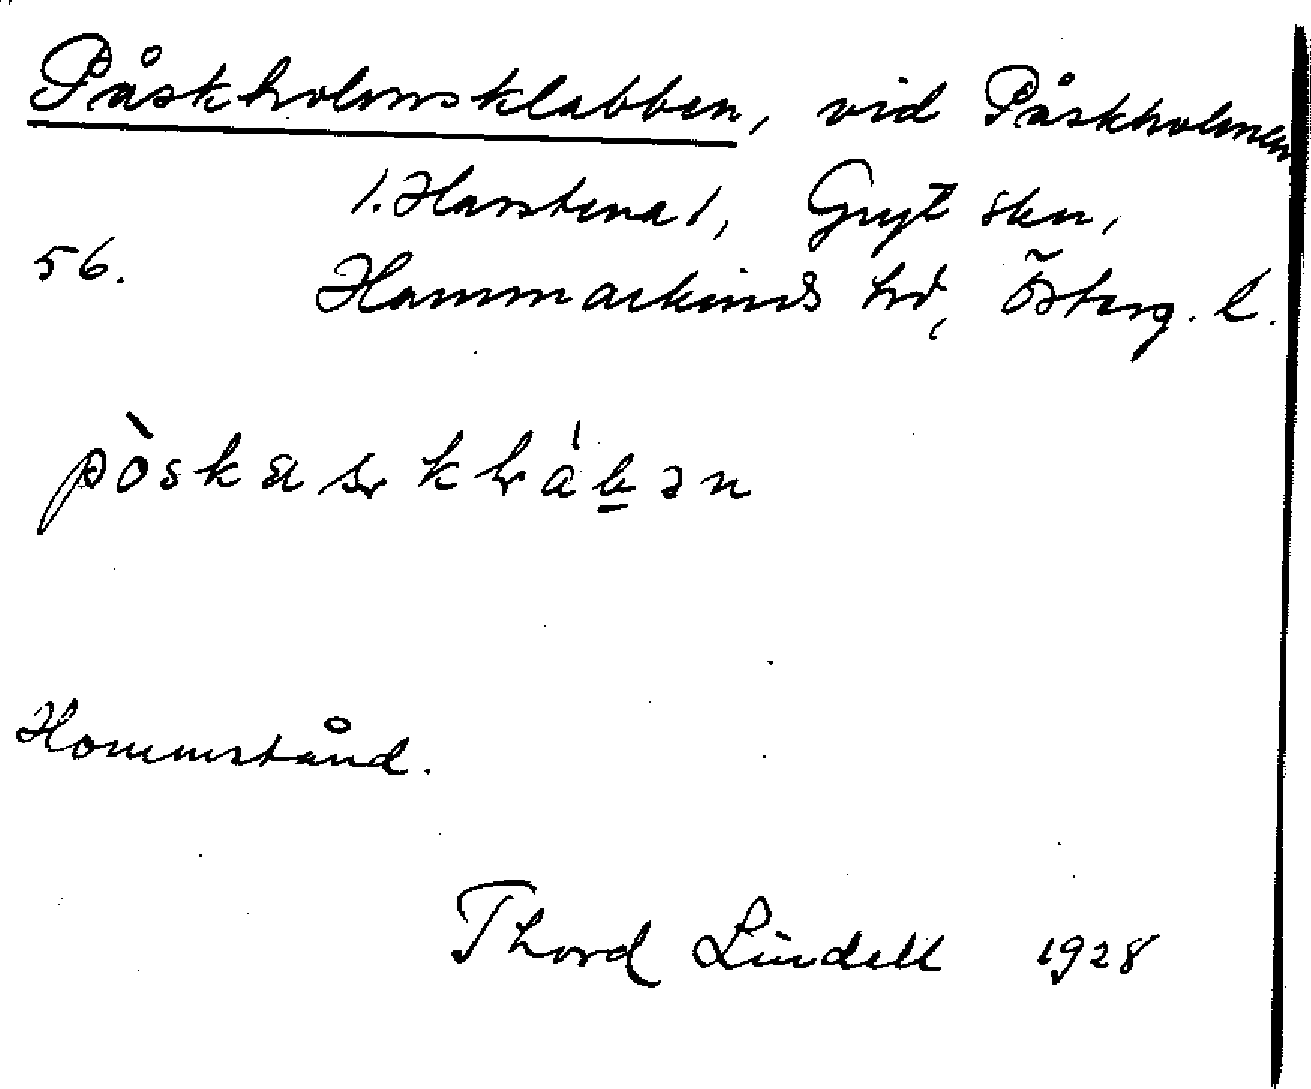 Påskholmsklabben, vid Påskholmen
/. Harstena /, Gryt skn,
56. Hammarkinds hd, Österg. l.
Hommstånd.
Thord Lindell 1928